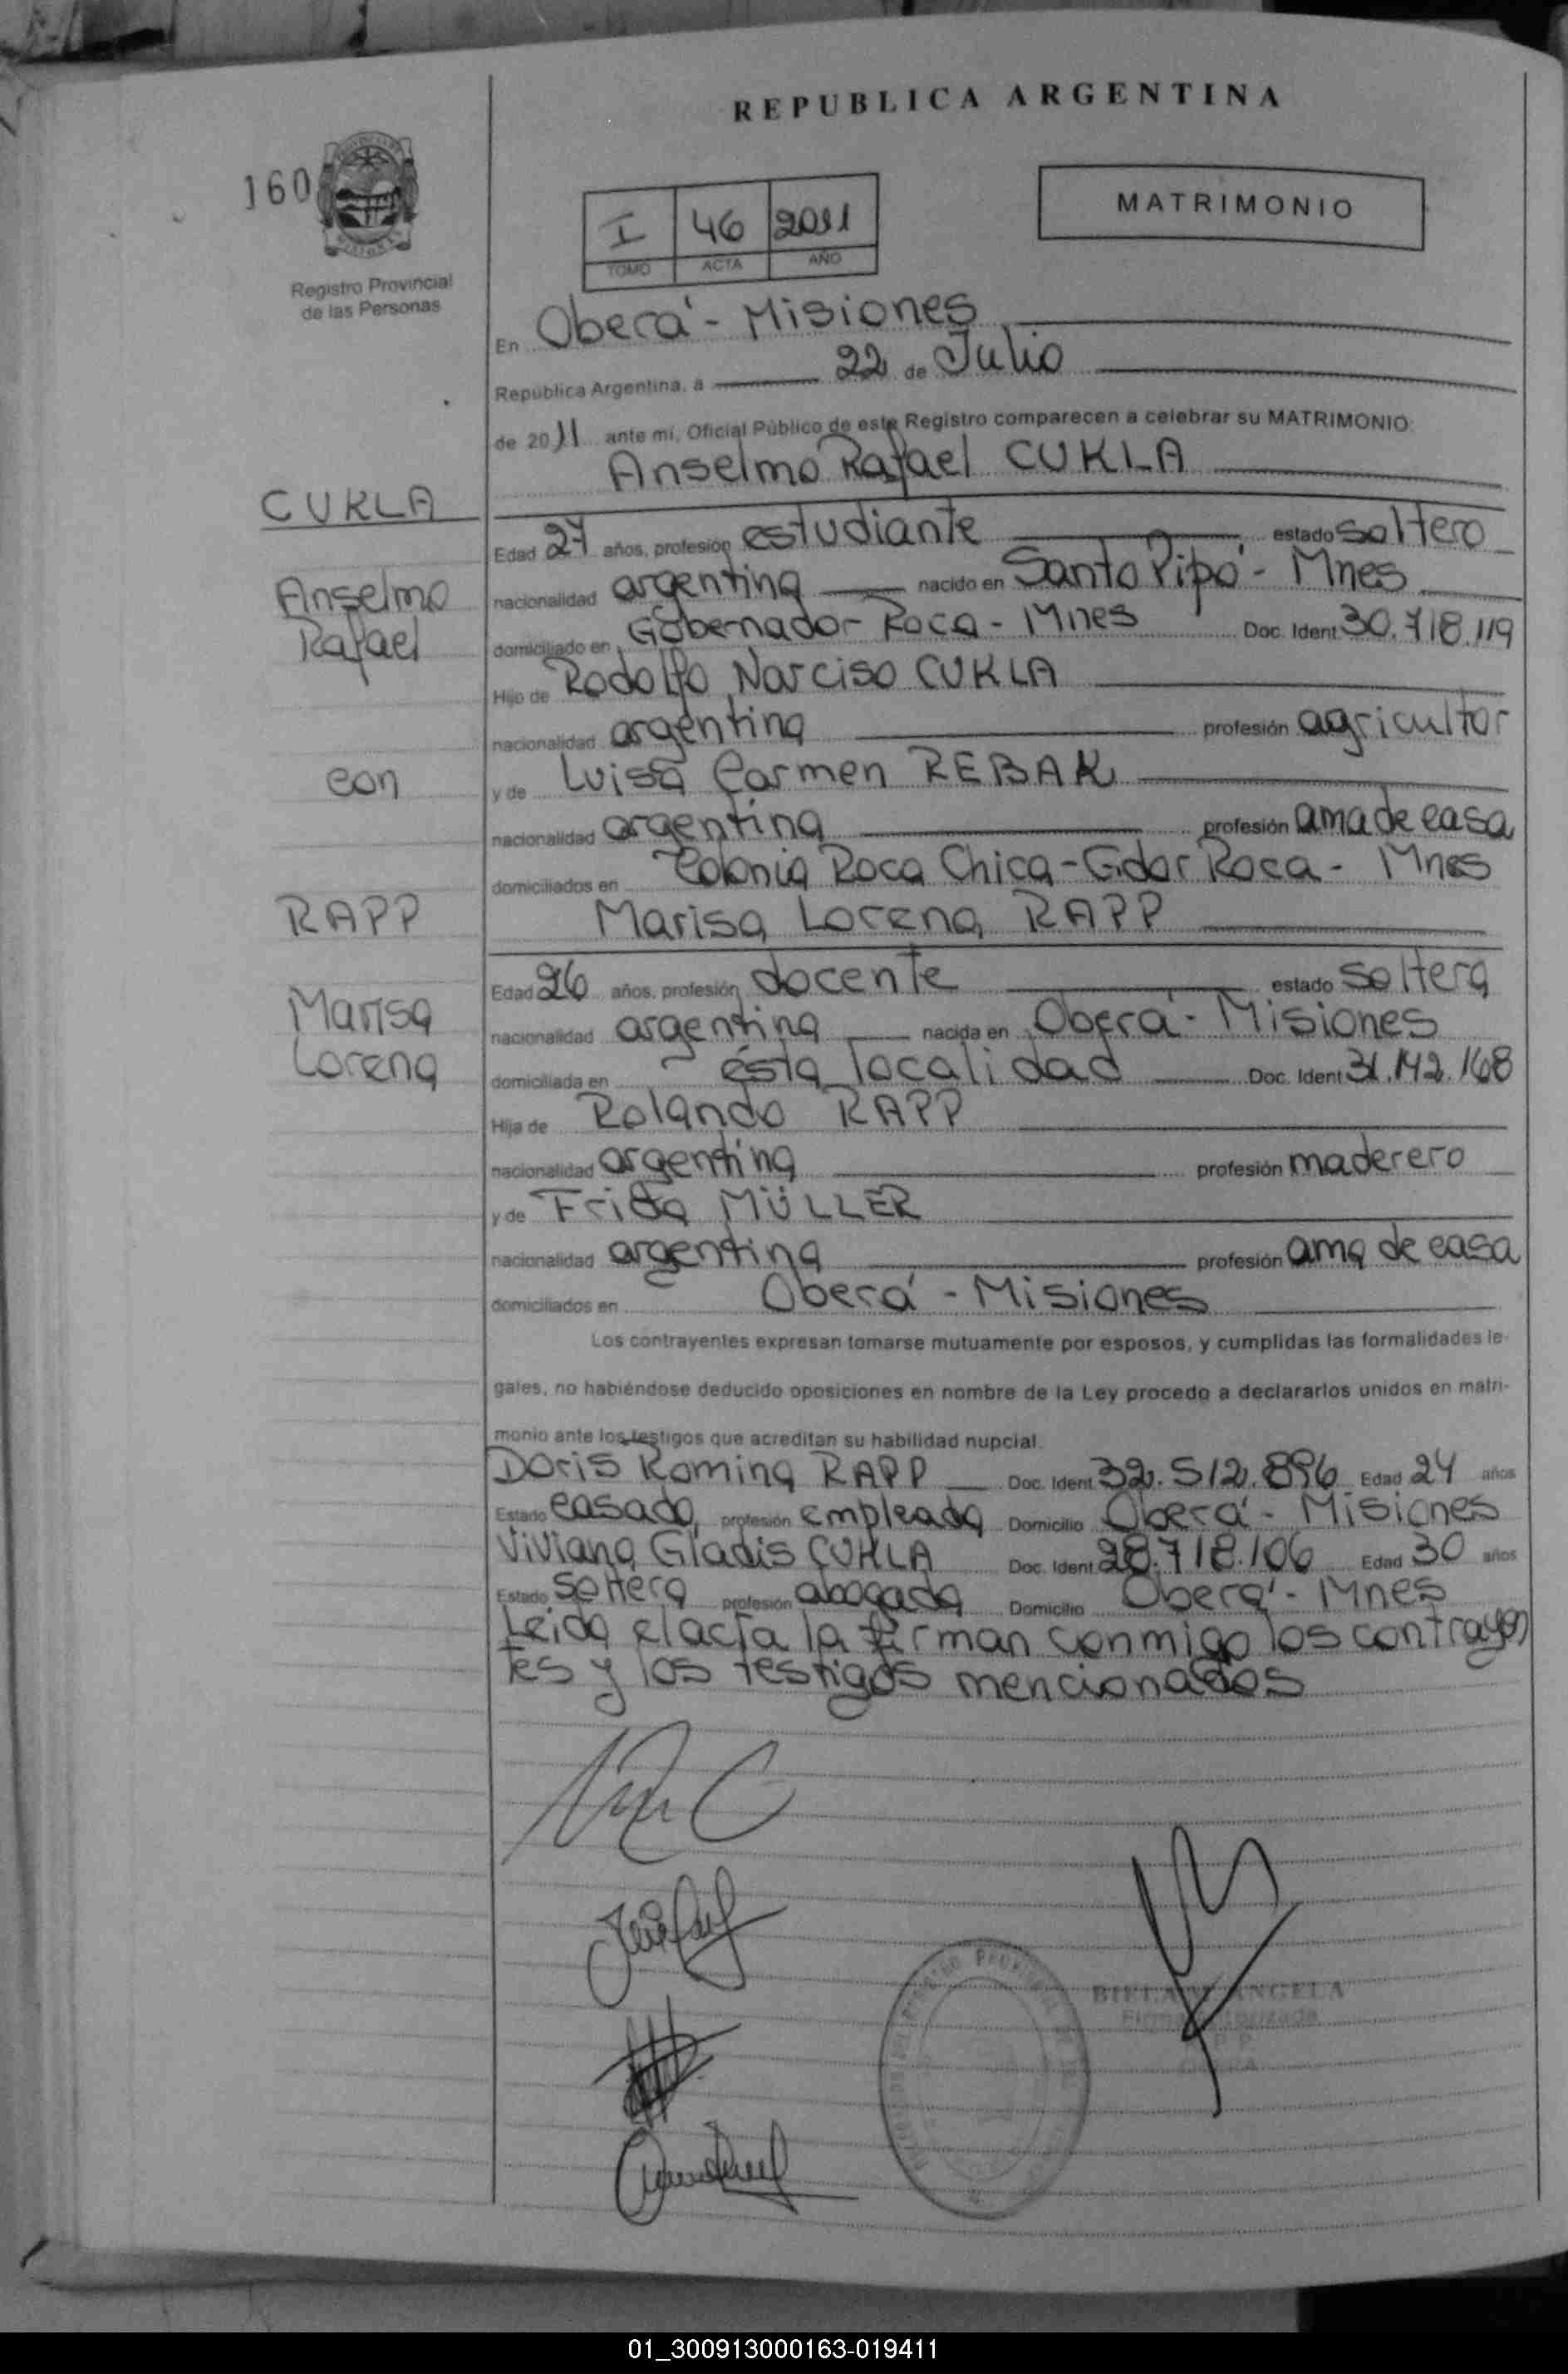 REPUBLICA ARGENTINA
160
Registro Provincial
de las Personas
I 46 2011
TOMO ACTA AÑO
MATRIMONIO
En Oberá - Misiones
República Argentina, a 22 de Julio
de 2011 ante mí, Oficial Público de este Registro comparecen a celebrar su MATRIMONIO:
Anselmo Rafael CUKLA
CUKLA
Anselmo
Rafael
con
RAPP
Marisa
Lorena
Edad 27 años, profesión estudiante estado soltero
nacionalidad argentina nacido en Santo Pipó - Mnes
domiciliado en Gobernador Roca - Mnes Doc. Ident 30.718.119
Hijo de Rodolfo Narciso CUKLA
nacionalidad argentina profesión agricultor
y de Luisa Carmen REBAK
nacionalidad argentina profesión ama de casa
domiciliados en Colonia Roca Chica - Gdor Roca - Mnes
Marisa Lorena RAPP
Edad 26 años, profesión docente estado soltera
nacionalidad argentina nacida en Oberá - Misiones
domiciliada en ésta localidad Doc. Ident 31.142.168
Hija de Rolando RAPP
nacionalidad argentina profesión maderero
y de Frida MÜLLER
nacionalidad argentina profesión ama de casa
domiciliados en Oberá - Misiones
Los contrayentes expresan tomarse mutuamente por esposos, y cumplidas las formalidades le-
gales, no habiéndose deducido oposiciones en nombre de la Ley procedo a declararlos unidos en matri-
monio ante los testigos que acreditan su habilidad nupcial.
Doris Romina RAPP Doc. Ident 32.512.896 Edad 24 años
Estado casada profesión empleada Domicilio Oberá - Misiones
Viviana Gladis CUKLA Doc. Ident 28.718.106 Edad 30 años
Estado soltera profesión abogada Domicilio Oberá - Mnes
Leida el acta la firman conmigo los contrayen
tes y los testigos mencionados
01_300913000163-019411